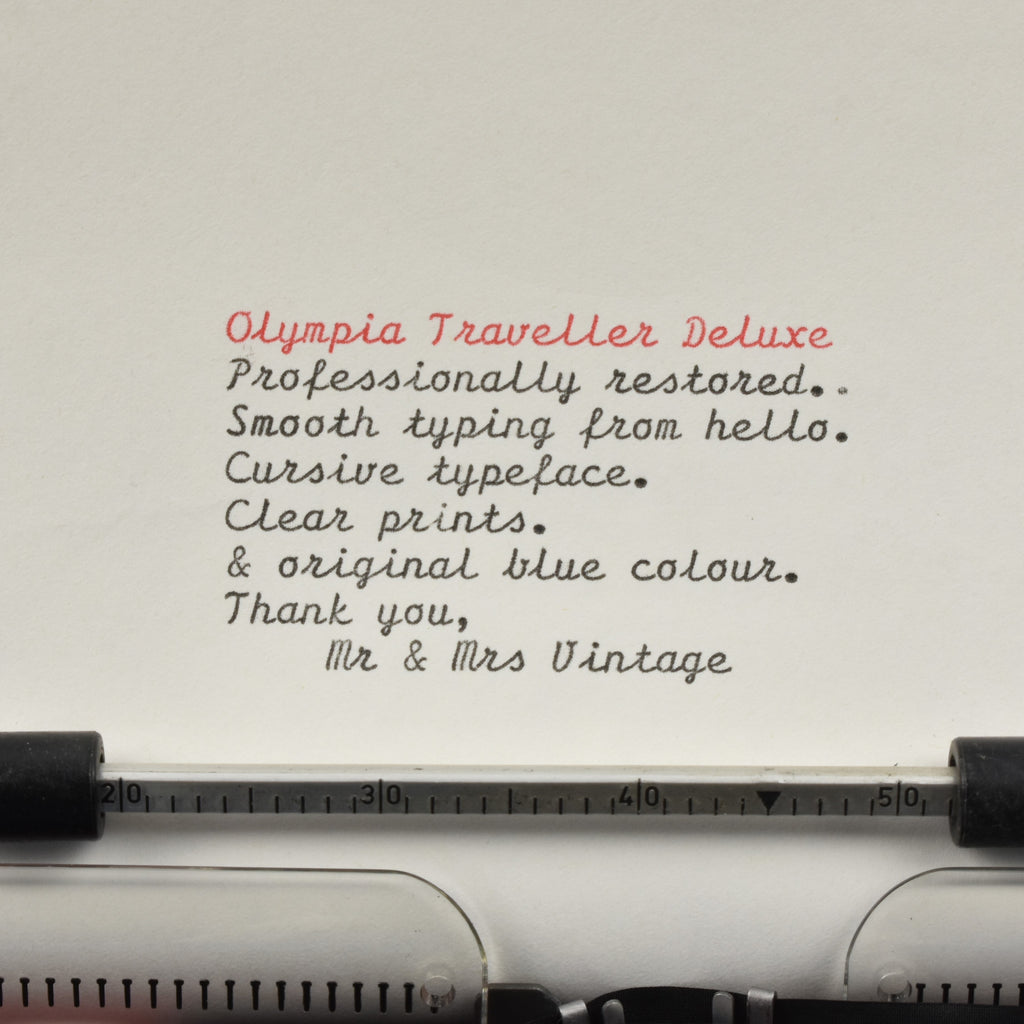 Olympia Traveller Deluxe
Professionally restored..
Smooth typing from hello.
Cursive typeface.
Clear prints.
& original blue colour.
Thank you,
Mr & Mrs Vintage
20 30 40 50